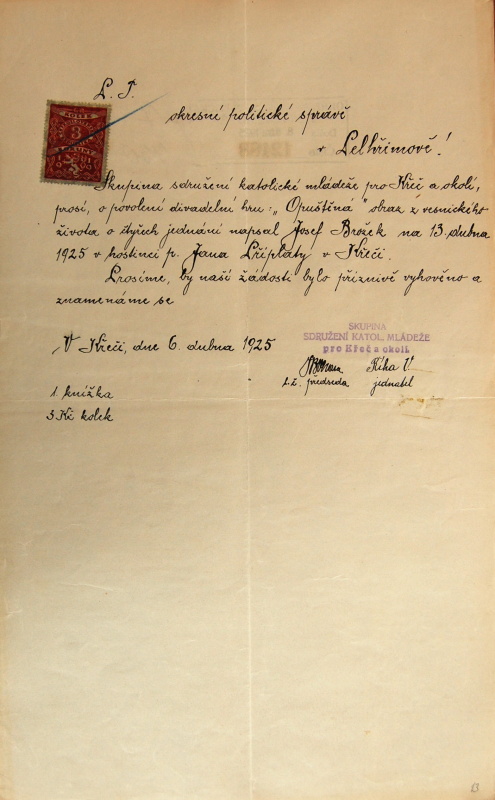 S. P.
okresní politické správě
v Pelhřimově!
Skupina sdružení katolické mládeže pro Křeč a okolí,
prosí, o povolení divadelní hru: „Opuštěná" obraz z vesnického
života o čtyřech jednání napsal Josef Brožek na 13. dubna
1925 v hostinci p. Jana Příplaty v Křeči.
Prosíme, by naší žádosti bylo příznivě vyhověno a
znamenáme se
V Křeči, dne 6. dubna 1925
SKUPINA
SDRUŽENÍ KATOL. MLÁDEŽE
pro Křeč a okolí.
Říha V.
t. č. předseda jednatel
1 knížka
3 Kč kolek
KOLEK
3
13